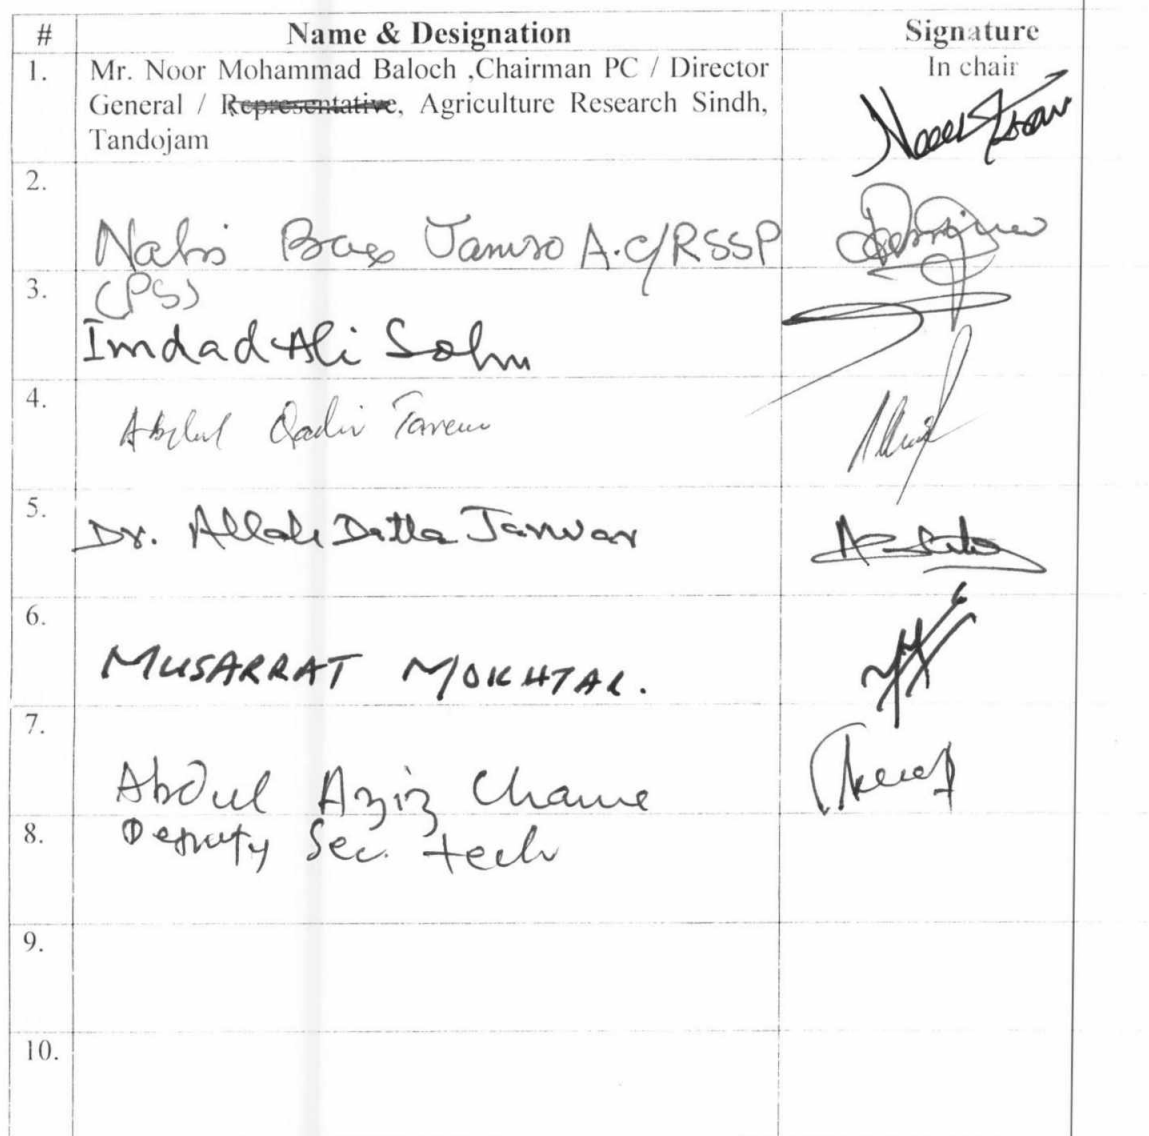 # Name & Designation Signature
1. Mr. Noor Mohammad Baloch ,Chairman PC / Director In chair
General / Representative, Agriculture Research Sindh,
Tandojam
2.
Nabi Bux Jamro A.C/RSSP
3.
(PS)
Imdad Ali Sohu
4.
Abdul Qadir Tareen
5.
Dr. Allah Ditta Janwar
6.
MUSARRAT MOKHTAR.
7.
Abdul Aziz Channe
8. Deputy Sec. tech
9.
10.